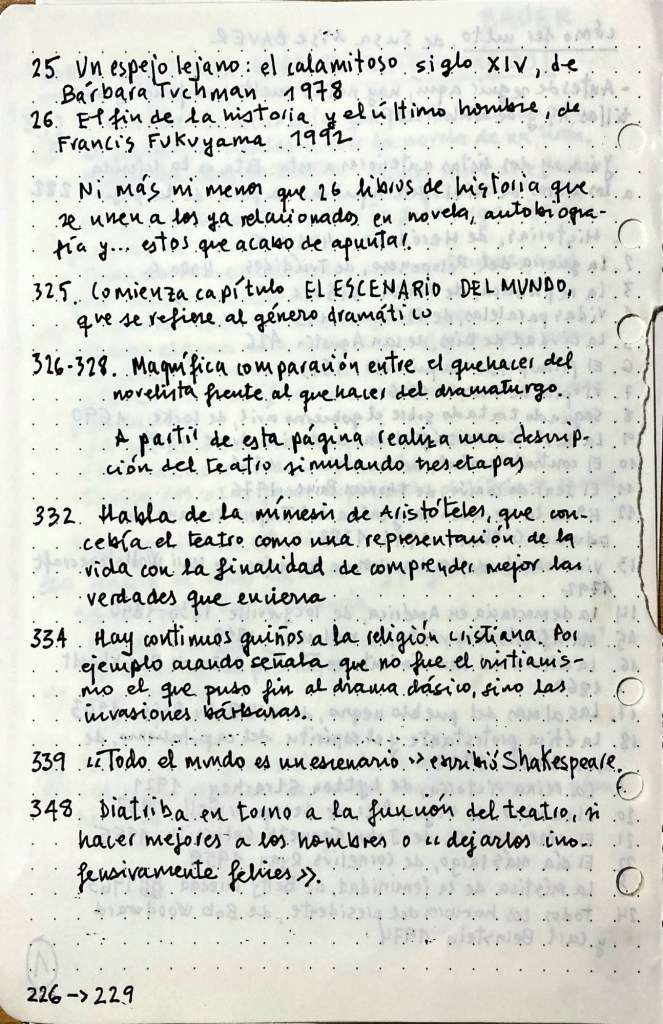 25. Un espejo lejano: el calamitoso siglo XIV, de
Bárbara Tuchman 1978
26. El fin de la historia y el último hombre, de
Francis Fukuyama 1992
Ni más ni menos que 26 libros de historia que
se unen a los ya relacionados en novela, autobiogra-
fía y... estos que acabo de apuntar.
325. Comienza capítulo EL ESCENARIO DEL MUNDO,
que se refiere al género dramático
326-328. Magnífica comparación entre el quehacer del
novelista frente al quehacer del dramaturgo.
A partir de esta página realiza una descrip-
ción del teatro simulando tres etapas
332. Habla de la mímesis de Aristóteles, que con-
cebía el teatro como una representación de la
vida con la finalidad de comprender mejor las
verdades que encierra
334 Hay continuos guiños a la religión cristiana. Por
ejemplo cuando señala que no fue el cristianis-
mo el que puso fin al drama clásico, sino las
invasiones bárbaras.
339 "Todo el mundo es un escenario" escribió Shakespeare.
348. Diatriba en torno a la función del teatro, si
hacer mejores a los hombres o "dejarlos ino-
fensivamente felices".
1
226 -> 229